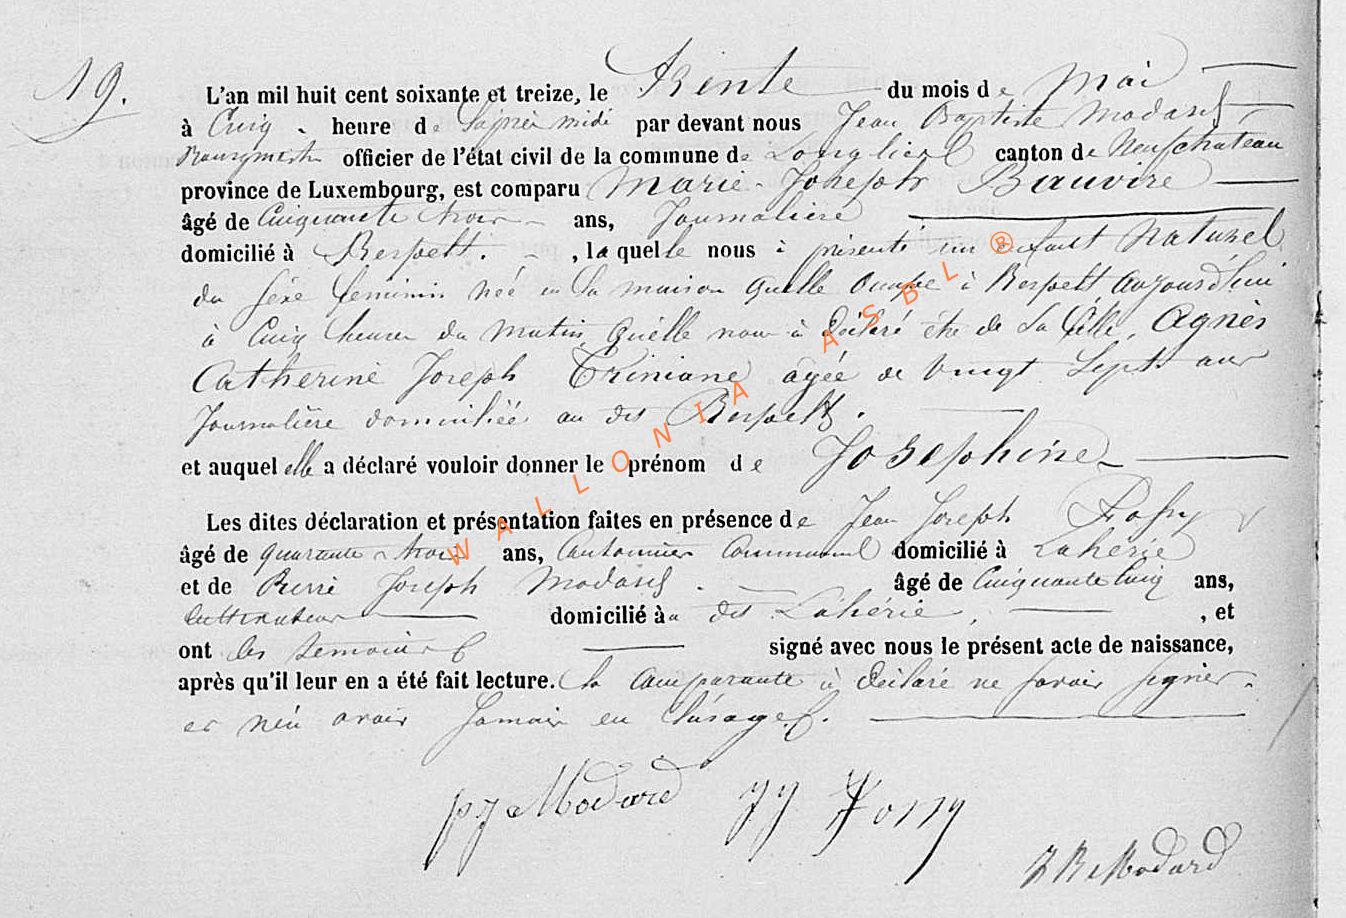 19.
L'an mil huit cent soixante et treize, le Trente du mois de Mai
à Cinq heure de l'aprés midi par devant nous Jean Baptiste Modard
Bourgmestre officier de l'état civil de la commune de Longlier canton de Neufchateau
province de Luxembourg, est comparu Marie Joseph Bauvire
âgé de Cinquante trois ans, Journalière
domicilié à Respelt. , la quelle nous à présenté un enfant Naturel
du séxe feminin née en la maison quelle occupe à Respelt aujourd'hui
à Cinq heures du matin, quélle nous à déclaré étre de sa fille, Agnès
Catherine Joseph Triniane agée de vingt Sept ans
Journalière domiciliée au dit Respelt.
et auquel elle a déclaré vouloir donner le prénom de Josephine
Les dites déclaration et présentation faites en présence de Jean Joseph
âgé de quarante trois ans, Cantonnier Communal domicilié à Lahérie
et de Pierre Joseph Modard âgé de Cinquante Cinq ans,
Cultivateur domicilié à au dit Lahérie, , et
ont les temoins signé avec nous le présent acte de naissance,
après qu'il leur en a été fait lecture. la Comparante à déclaré ne savoir signer
et n'en avoir Jamais eu l'usage.
pj Modard JJ
JB Modard
WALLONIA ASBL ®